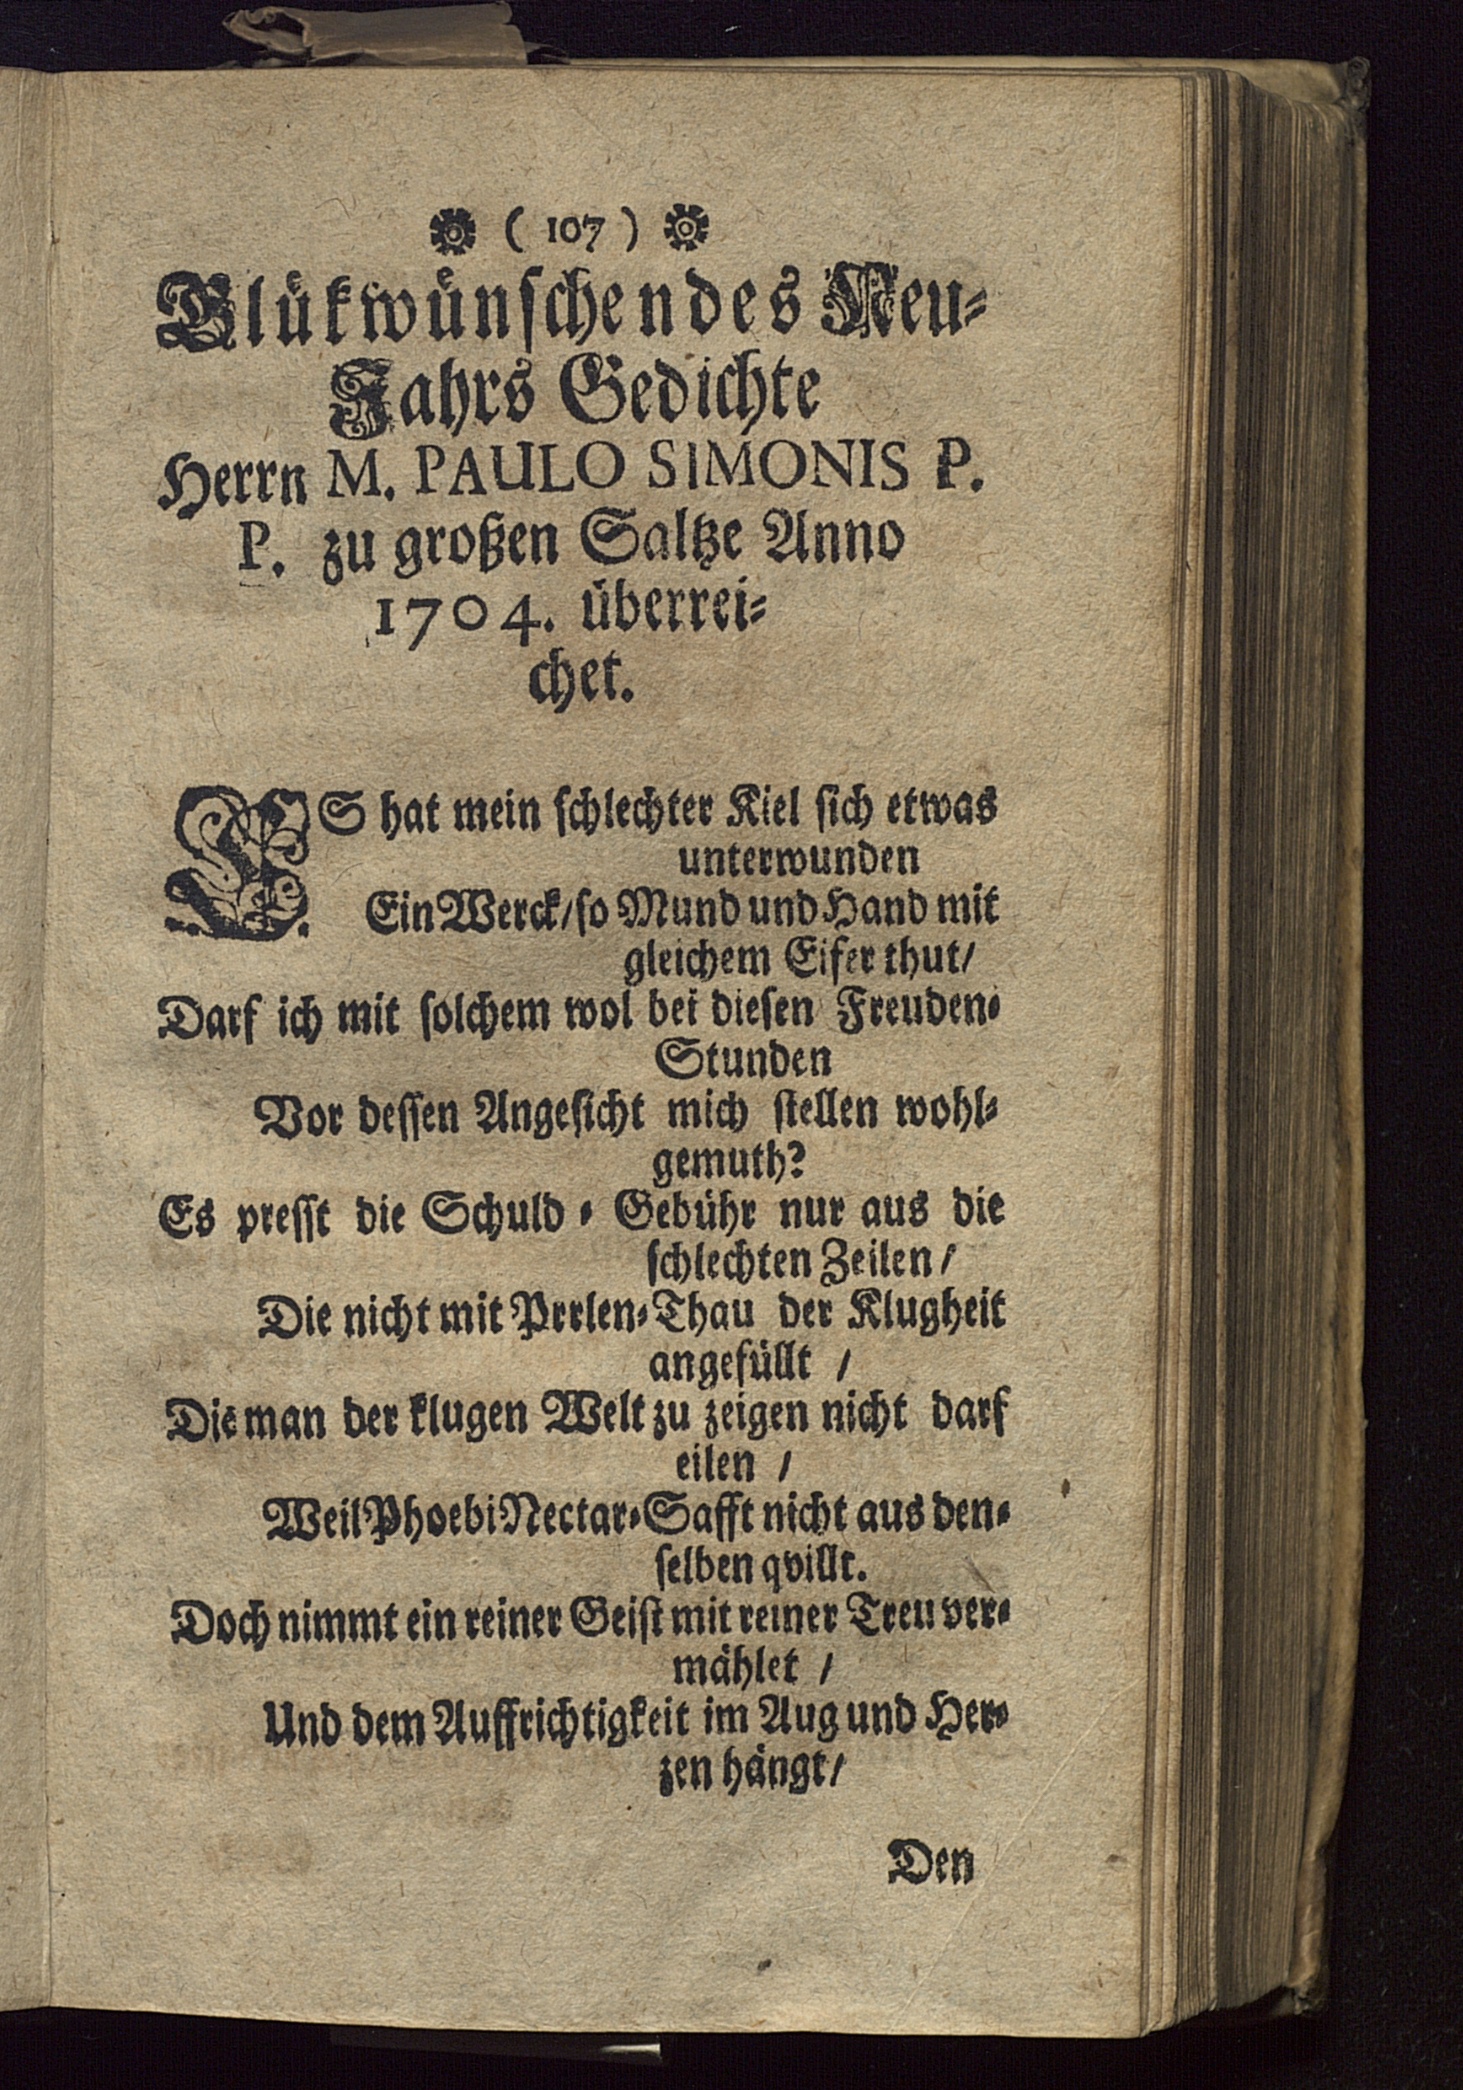 ( 107 )
Glükwünschendes Neu-
Jahrs Gedichte
Herrn M. PAULO SIMONIS P.
P. zu großen Saltze Anno
1704. überrei-
chet.
ES hat mein schlechter Kiel sich etwas
unterwunden
Ein Werck/ so Mund und Hand mit
gleichem Eifer thut/
Darf ich mit solchem wol bei diesen Freuden-
Stunden
Vor dessen Angesicht mich stellen wohl-
gemuth?
Es presst die Schuld-Gebühr nur aus die
schlechten Zeilen/
Die nicht mit Prrlen-Thau der Klugheit
angefüllt /
Die man der klugen Welt zu zeigen nicht darf
eilen /
Weil Phoebi Nectar-Safft nicht aus den-
selben qvillt.
Doch nimmt ein reiner Geist mit reiner Treu ver-
mählet /
Und dem Auffrichtigkeit im Aug und Her-
zen hängt/
Den